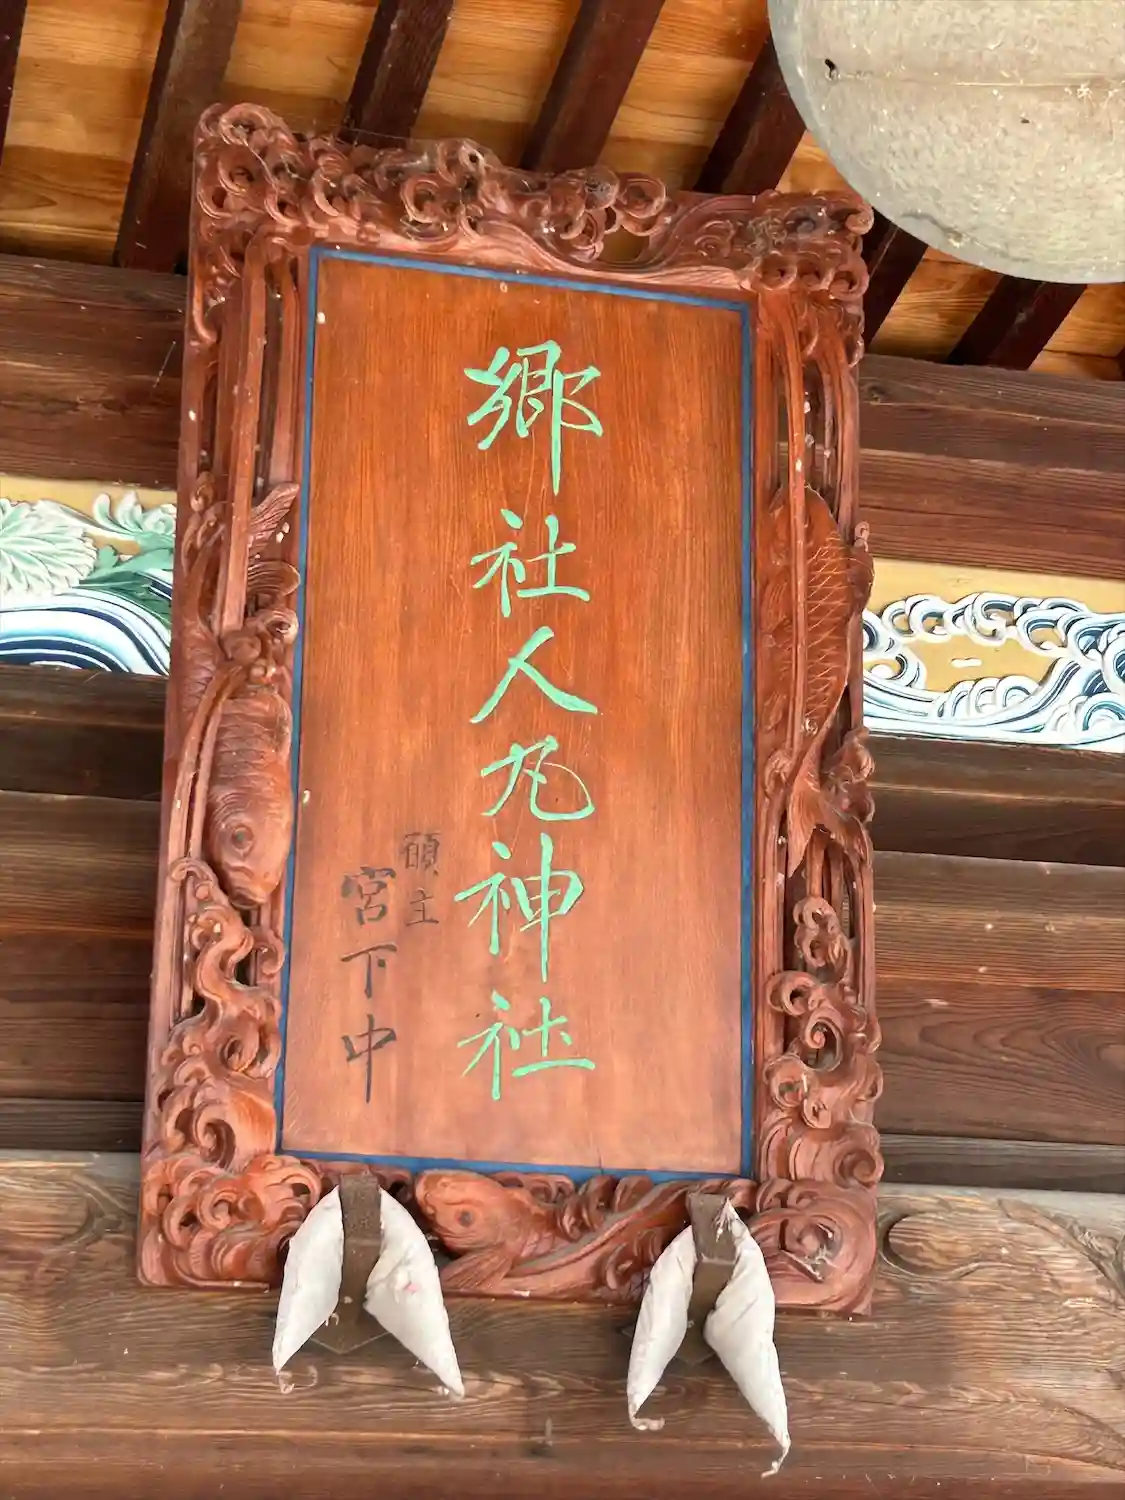 郷社人丸神社
願主
宮下中